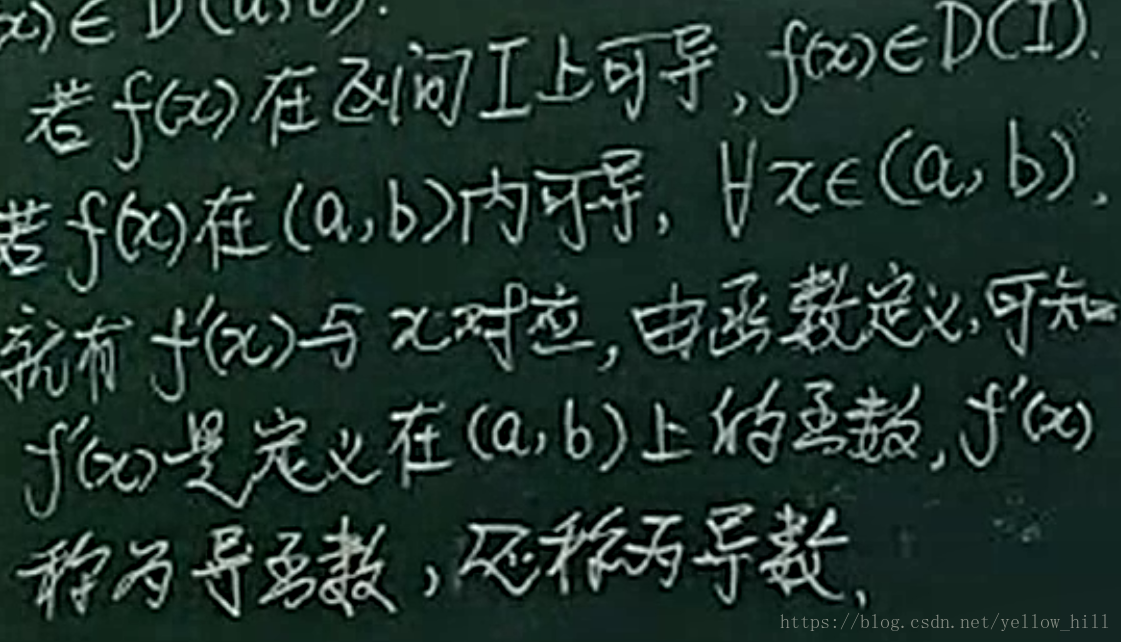 x)∈D(a,b).
若f(x)在区间I上可导,f(x)∈D(I).
若f(x)在(a,b)内可导,∀x∈(a,b),
就有f'(x)与x对应,由函数定义,可知
f'(x)是定义在(a,b)上的函数,f'(x)
称为导函数,还称为导数,
https://blog.csdn.net/yellow_hill